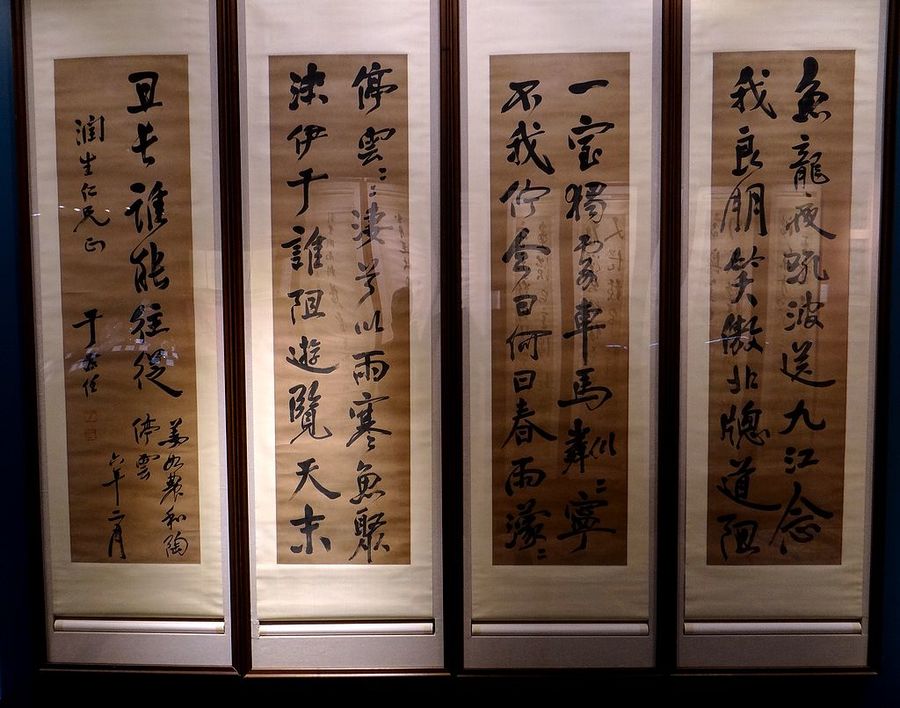 魚龍夜吼波送九江念
我良朋笑傲北牕道阻
一室獨處車馬 寧
不我佇今日何日春雨濛〻
停雲〻淒兮以雨寒魚聚
沫伊于誰阻遊覽天末
且長誰能往從
姜如農和陶
停雲
六年二月
潤生仁兄正
于右任